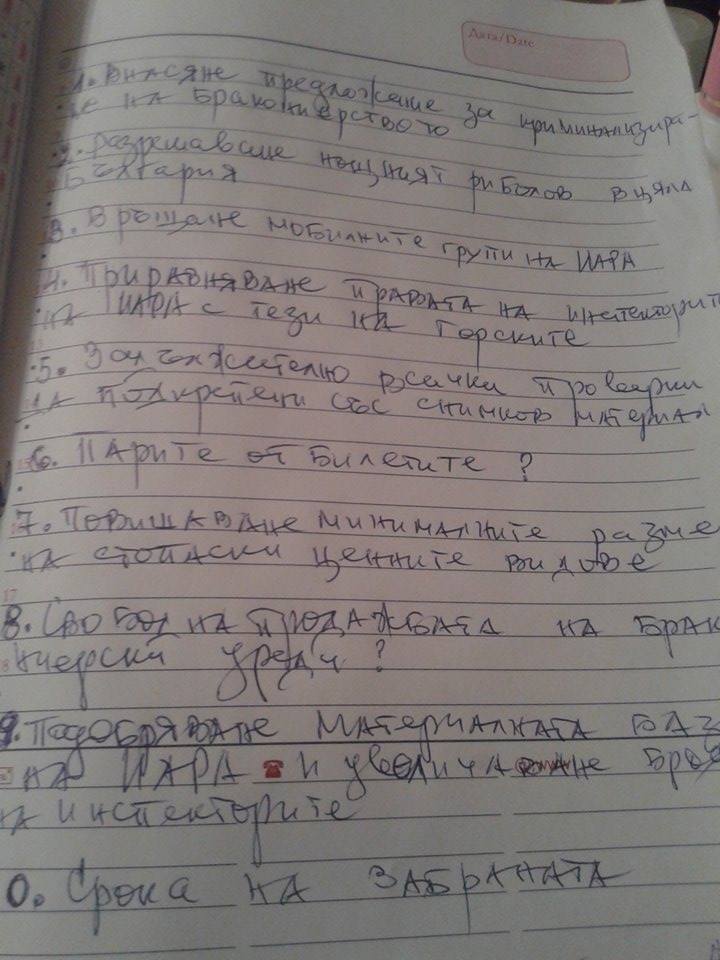 Дата/Date
1. Внасяне предложение за криминализира-
не на бракониерството
2. Разрешаване нощният риболов в цяла
България
3. Връщане мобилните групи на ИАРА
4. Приравняване правата на инспекторит
на ИАРА с тези на горските
5. Задължително всички проверки
да подкрепени със снимков материал
6. Парите от билетите ?
7. Повишаване минималните разме
на стопаски ценните видове
8. Свободна продажбата на брак
ниерски уреди ?
9. Подобряване материалната баз
на ИАРА и увеличаване броя
на инспекторите
0. Срока на забраната